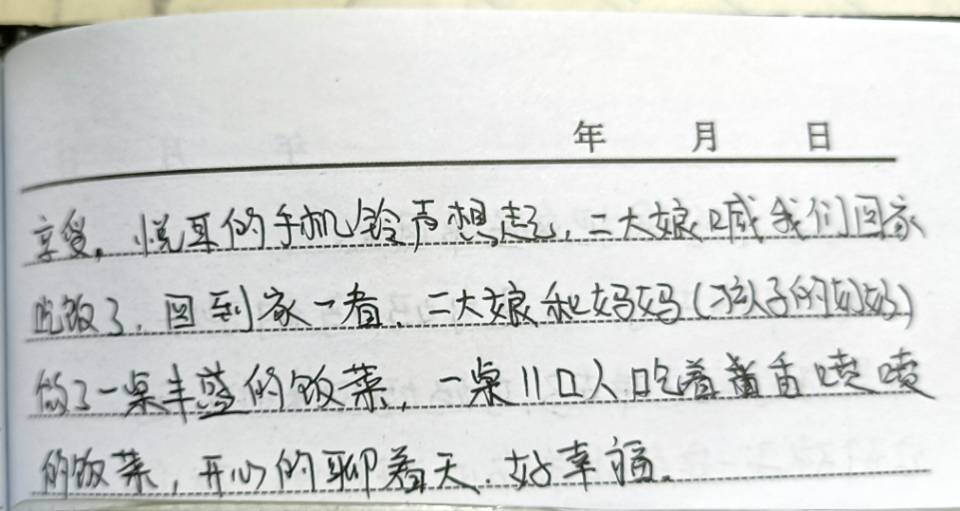 年 月 日
享受。悦耳的手机铃声想起,二大娘喊我们回家
吃饭了,回到家一看,二大娘和妈妈(孩子的奶奶)
做了一桌丰盛的饭菜,一桌11口人吃着香喷喷
的饭菜,开心的聊着天,好幸福。